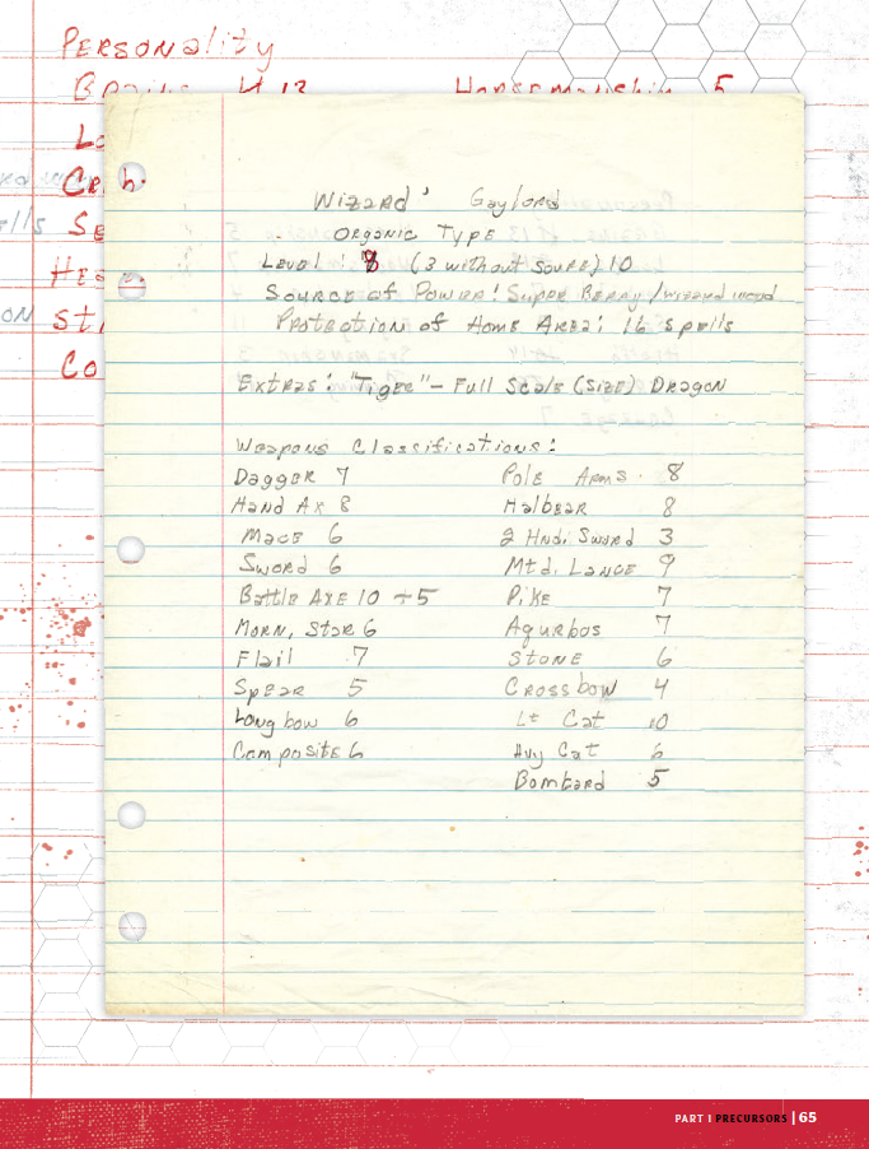 Personality
Horsemanship 5
Cr
Se
St
Co
Wizard' Gaylord
Organic Type
Level: 8 (3 without soure) 10
Source of Power! Super Berry/wizzard wood
Protection of Home Area: 16 spells
Extras: "Tiger" – Full Scale (Size) Dragon
Weapons Classifications:
Dagger 7
Hand Ax 8
Mace 6
Sword 6
Battle Axe 10 +5
Morn, Star 6
Flail 7
Spear 5
Long bow 6
Composite 6
Pole Arms. 8
Halbear 8
2 Hnd. Sword 3
Mtd. Lance 9
Pike 7
Aqurbos 7
Stone 6
Crossbow 4
Lt Cat 10
Hvy Cat 6
Bombard 5
PART 1 PRECURSORS | 65